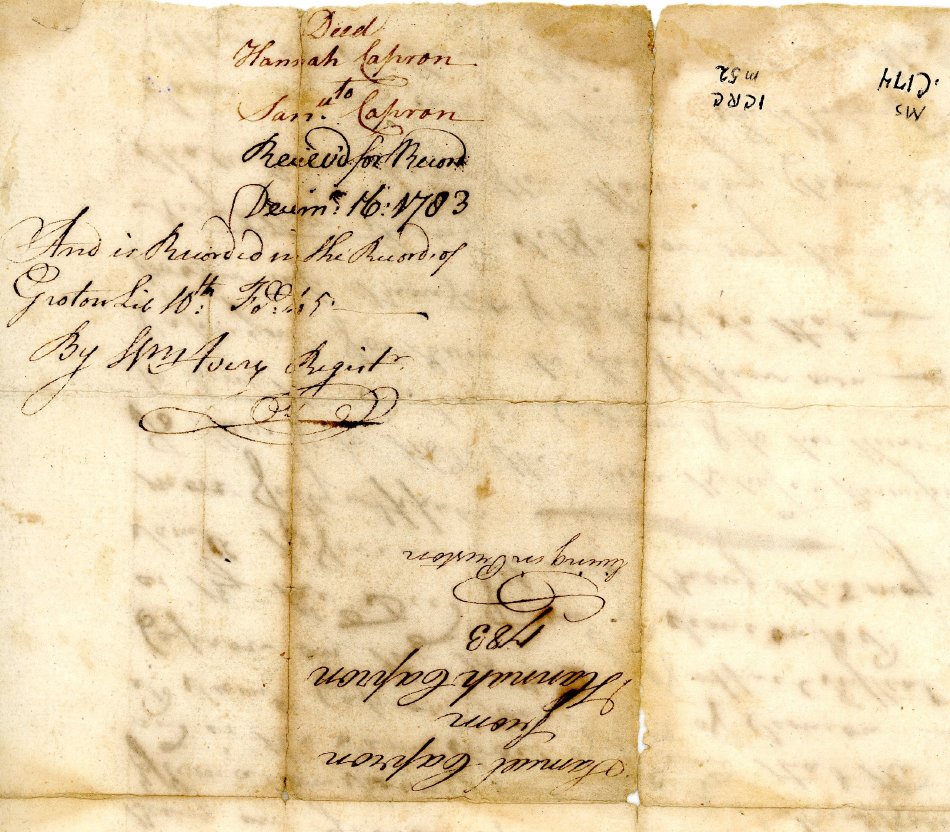 Deed
Hannah Capron
to
Sam.ll Capron
Receiv'd for Record
Decem.r 16: 1783
And is Recorded in the Records of
Groton Lib 10th: Fo: 
By Wm Avery Regist.r
Samuel Capron
from
Hannah Capron
1783
living in Preston
MS
C174
ICRC
m52